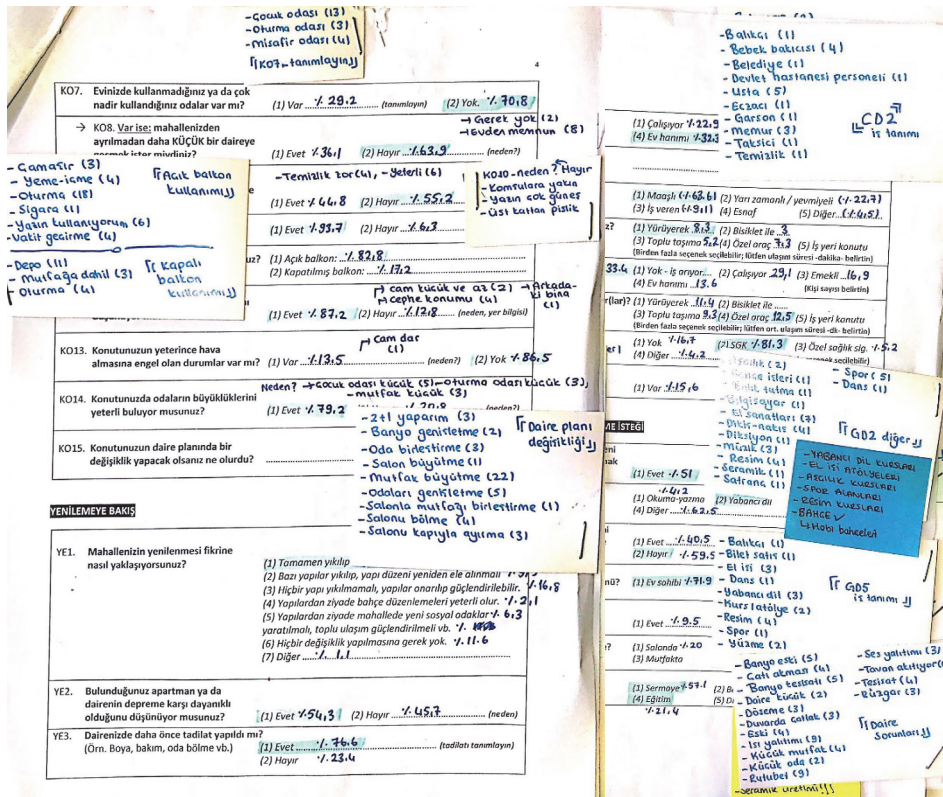 - Çocuk odası (13)
- Oturma odası (3)
- Misafir odası (4)
[[KO7- tanımlayın]]
4
KO7. Evinizde kullanmadığınız ya da çok
nadir kullandığınız odalar var mı?
(1) Var ٪ 29.2 (tanımlayın) (2) Yok. ٪ 70,8
→ Gerek yok (2)
→ Evden memnun (8)
→ KO8. Var ise: mahallenizden
ayrılmadan daha KÜÇÜK bir daireye
(1) Evet ٪ 36,1 (2) Hayır ٪ 63.9 (neden?)
- Temizlik zor (4), - Yeterli (6)
(1) Evet ٪ 44,8 (2) Hayır ٪ 55.2
(1) Evet ٪ 93.7 (2) Hayır ٪ 6.3
- Çamaşır (3)
- Yeme-içme (4)
- Oturma (18)
- Sigara (1)
- Yazın kullanıyorum (6)
- Vakit geçirme (4)
[[Açık balkon
kullanımı]]
- Depo (11)
- Mutfağa dahil (3)
- Oturma (4)
[[Kapalı
balkon
kullanımı]]
KO10- neden? Hayır
- Komşulara yakın
- Yazın çok güneş
- Üst kattan pislik
(1) Açık balkon: ٪ 82,8
(2) Kapatılmış balkon: ٪ 17.2
→ cam küçük ve az (2) → Arkada-
ki bina
(1)
→ cephe konumu (4)
(1) Evet ٪ 87.2 (2) Hayır ٪ 12.8 (neden, yer bilgisi)
→ Cam dar
(1)
KO13. Konutunuzun yeterince hava
almasına engel olan durumlar var mı?
(1) Var ٪ 13,5 (neden?) (2) Yok ٪ 86,5
Neden? → Çocuk odası küçük (5) - oturma odası küçük (3),
- mutfak küçük (3)
KO14. Konutunuzda odaların büyüklüklerini
yeterli buluyor musunuz?
(1) Evet ٪ 79,2
KO15. Konutunuzun daire planında bir
değişiklik yapacak olsanız ne olurdu?
- 2+1 yaparım (3)
- Banyo genişletme (2)
- Oda birleştirme (3)
- Salon büyütme (1)
- Mutfak büyütme (22)
- Odaları genişletme (5)
- Salonla mutfağı birleştirme (1)
- Salonu bölme (4)
- Salonu kapıyla ayırma (3)
[[Daire planı
değişikliği]]
YENİLEMEYE BAKIŞ
YE1. Mahallenizin yenilenmesi fikrine
nasıl yaklaşıyorsunuz?
(1) Tamamen yıkılıp
(2) Bazı yapılar yıkılıp, yapı düzeni yeniden ele alınmalı
(3) Hiçbir yapı yıkılmamalı, yapılar onarılıp güçlendirilebilir. ٪ 16,8
(4) Yapılardan ziyade bahçe düzenlemeleri yeterli olur. ٪ 2,1
(5) Yapılardan ziyade mahallede yeni sosyal odaklar ٪ 6,3
yaratılmalı, toplu ulaşım güçlendirilmeli vb.
(6) Hiçbir değişiklik yapılmasına gerek yok. ٪ 11.6
(7) Diğer ٪ 1.1
YE2. Bulunduğunuz apartman ya da
dairenizin depreme karşı dayanıklı
olduğunu düşünüyor musunuz?
(1) Evet ٪ 54,3 (2) Hayır ٪ 45,7 (neden)
YE3. Dairenizde daha önce tadilat yapıldı mı?
(Örn. Boya, bakım, oda bölme vb.)
(1) Evet ٪ 76.6 (tadilatı tanımlayın)
(2) Hayır ٪ 23.4
- Balıkçı (1)
- Bebek bakıcısı (4)
- Belediye (1)
- Devlet hastanesi personeli (1)
- Usta (5)
- Eczacı (1)
- Garson (1)
- Memur (3)
- Taksici (1)
- Temizlik (1)
[[ÇD2
iş tanımı
(1) Çalışıyor ٪ 22.9
(4) Ev hanımı ٪ 32.3
(1) Maaşlı (٪ 63.61) (2) Yarı zamanlı / yevmiyeli (٪ 22,7)
(3) İş veren (٪ 9,1) (4) Esnaf (5) Diğer (٪ 4,5)
(1) Yürüyerek 8.3 (2) Bisiklet ile 3
(3) Toplu taşıma 5,2 (4) Özel araç 7,3 (5) İş yeri konutu
(Birden fazla seçenek seçilebilir; lütfen ulaşım süresi -dakika- belirtin)
33.4 (1) Yok - iş arıyor (2) Çalışıyor 29,1 (3) Emekli 16,9
(4) Ev hanımı 13.6 (Kişi sayısı belirtin)
(lar)? (1) Yürüyerek 11,4 (2) Bisiklet ile
(3) Toplu taşıma 9,3 (4) Özel araç 12,5 (5) İş yeri konutu
(Birden fazla seçenek seçilebilir; lütfen ort. ulaşım süresi -dk- belirtin)
(1) Yok ٪ 16,7 (2) SGK ٪ 81,3 (3) Özel sağlık sig. ٪ 5.2
(4) Diğer ٪ 4,2
(1) Var ٪ 15,6
- Bilgisayar (1)
- El sanatları (7)
- Dikiş-nakış (4)
- Diksiyon (1)
- Müzik (3)
- Resim (4)
- Seramik (1)
- Satranç (1)
- Spor (5)
- Dans (1)
[[GD2 diğer]]
ME İSTEĞİ
- YABANCI DİL KURSLARI
- EL İŞİ ATÖLYELERİ
- AŞÇILIK KURSLARI
- SPOR ALANLARI
- RESİM KURSLARI
- BAHÇE ✓
↳ Hobi bahçeleri
(1) Evet ٪ 51
٪ 4,2
(1) Okuma-yazma (2) Yabancı dil
(4) Diğer ٪ 62.5
(1) Evet ٪ 40,5
(2) Hayır ٪ 59.5
(1) Ev sahibi ٪ 71.9
(1) Evet ٪ 9.5
(1) Salonda ٪ 20
(3) Mutfakta
(1) Sermaye ٪ 57.1
(4) Eğitim
٪ 21,4
- Balıkçı (1)
- Bilet satış (1)
- El işi (3)
- Dans (1)
- Yabancı dil (3)
- Kurs / atölye (2)
- Resim (4)
- Spor (1)
- Yüzme (2)
[[GD5
iş tanımı]]
- Banyo eski (5)
- Çatı akması (4)
- Banyo tesisatı (5)
- Daire küçük (2)
- Döşeme (3)
- Duvarda çatlak (3)
- Eski (4)
- Isı yalıtımı (9)
- Küçük mutfak (4)
- Küçük oda (2)
- Rutubet (9)
- Ses yalıtımı (3)
- Tavan akıtıyor
- Tesisat (4)
- Rüzgar (3)
[[Daire
Sorunları]]
- Seramik üretimi!